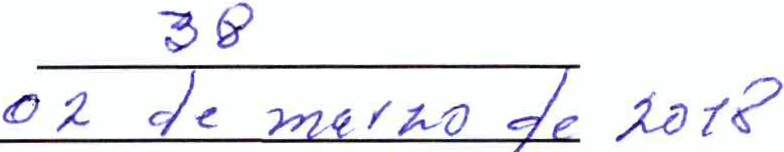 38
02 de marzo de 2018